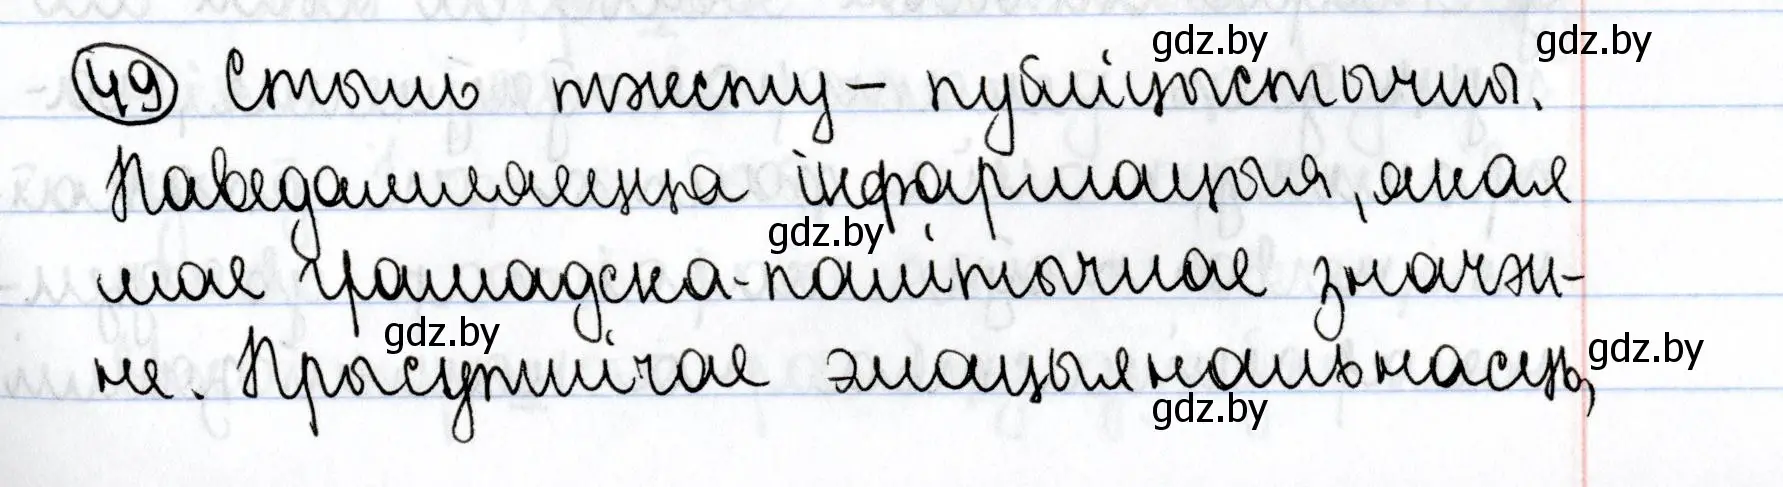 49 Стыль тэксту – публіцыстычны.
Паведамляецца інфармацыя, якая
мае грамадска-палітычнае значэн-
не. Прысутнічае эмацыянальнасць,
gdz.by
gdz.by
gdz.by
gdz.by
gdz.by
gdz.by